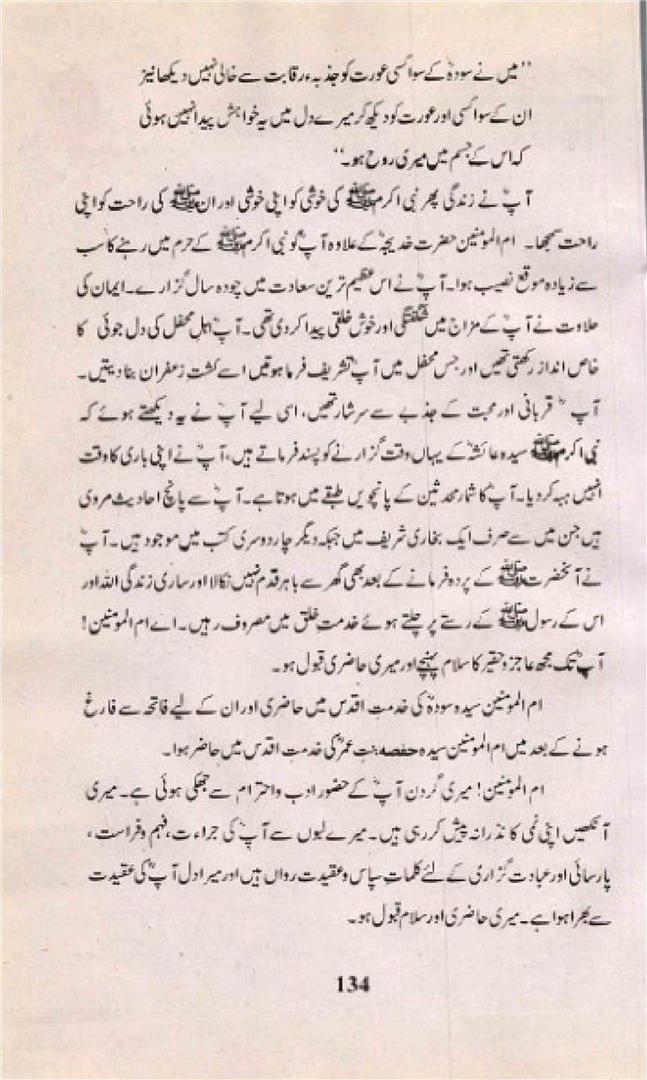 "میں نے سودہؓ کے سوا کسی عورت کو جذبہء رقابت سے خالی نہیں دیکھا نیز
ان کے سوا کسی اور عورت کو دیکھ کر میرے دل میں یہ خواہش پیدا نہیں ہوئی
کہ اس کے جسم میں میری روح ہو۔"
آپؓ نے زندگی بھر نبی اکرم ﷺ کی خوشی کو اپنی خوشی اور ان ﷺ کی راحت کو اپنی
راحت سمجھا۔ ام المومنین حضرت خدیجہؓ کے علاوہ آپؓ کو نبی اکرم ﷺ کے حرم میں رہنے کا سب
سے زیادہ موقع نصیب ہوا۔ آپؓ نے اس عظیم ترین سعادت میں چودہ سال گزارے۔ ایمان کی
حلاوت نے آپؓ کے مزاج میں شگفتگی اور خوش خلقی پیدا کر دی تھی۔ آپؓ اہلِ محفل کی دل جوئی کا
خاص انداز رکھتی تھیں اور جس محفل میں آپؓ تشریف فرما ہوتیں اسے کشتِ زعفران بنا دیتیں۔
آپؓ قربانی اور محبت کے جذبے سے سرشار تھیں، اسی لیے آپؓ نے یہ دیکھتے ہوئے کہ
نبی اکرم ﷺ سیدہ عائشہؓ کے یہاں وقت گزارنے کو پسند فرماتے ہیں، آپؓ نے اپنی باری کا وقت
انہیں ہبہ کر دیا۔ آپؓ کا شمار محدثین کے پانچویں طبقے میں ہوتا ہے۔ آپؓ سے پانچ احادیث مروی
ہیں جن میں سے صرف ایک بخاری شریف میں جبکہ دیگر چار دوسری کتب میں موجود ہیں۔ آپؓ
نے آنحضرت ﷺ کے پردہ فرمانے کے بعد بھی گھر سے باہر قدم نہیں نکالا اور ساری زندگی اللہ اور
اس کے رسول ﷺ کے رستے پر چلتے ہوئے خدمتِ خلق میں مصروف رہیں۔ اے ام المومنین!
آپؓ تک مجھ عاجز و حقیر کا سلام پہنچے اور میری حاضری قبول ہو۔
ام المومنین سیدہ سودہؓ کی خدمتِ اقدس میں حاضری اور ان کے لیے فاتحہ سے فارغ
ہونے کے بعد میں ام المومنین سیدہ حفصہ بنت عمرؓ کی خدمتِ اقدس میں حاضر ہوا۔
ام المومنین! میری گردن آپؓ کے حضور ادب و احترام سے جھکی ہوئی ہے۔ میری
آنکھیں اپنی نمی کا نذرانہ پیش کر رہی ہیں۔ میرے لبوں سے آپؓ کی جراءت، فہم و فراست،
پارسائی اور عبادت گزاری کے لئے کلماتِ سپاس و عقیدت رواں ہیں اور میرا دل آپؓ کی عقیدت
سے بھرا ہوا ہے۔ میری حاضری اور سلام قبول ہو۔
134